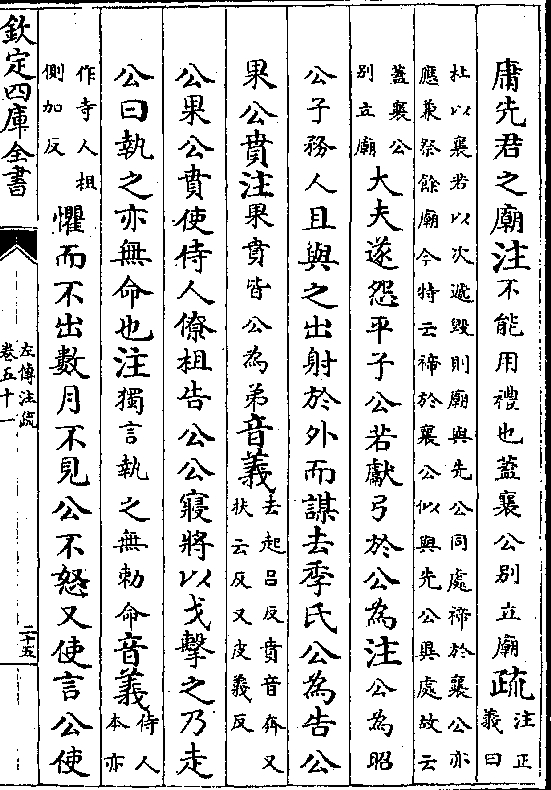 庸先君之廟注不能用禮也蓋襄公别立廟疏注正
義曰
杜以襄若以次遞毀則廟與先公同處禘於襄公亦
應兼祭餘廟今特云禘於襄公似與先公異處故云
蓋襄公
别立廟大夫遂怨平子公若獻弓於公為注公為昭
公子務人且與之出射於外而謀去季氏公為告公
果公賁注果賁皆公為弟音義去起呂反賁音奔又
扶云反又皮義反
公果公賁使侍人僚柤告公公寢將以戈擊之乃走
公曰執之亦無命也注獨言執之無勅命音義侍人
本亦
作寺人柤
側加反懼而不出數月不見公不怒又使言公使
欽定四庫全書
左傳注疏
卷五十一
二十五